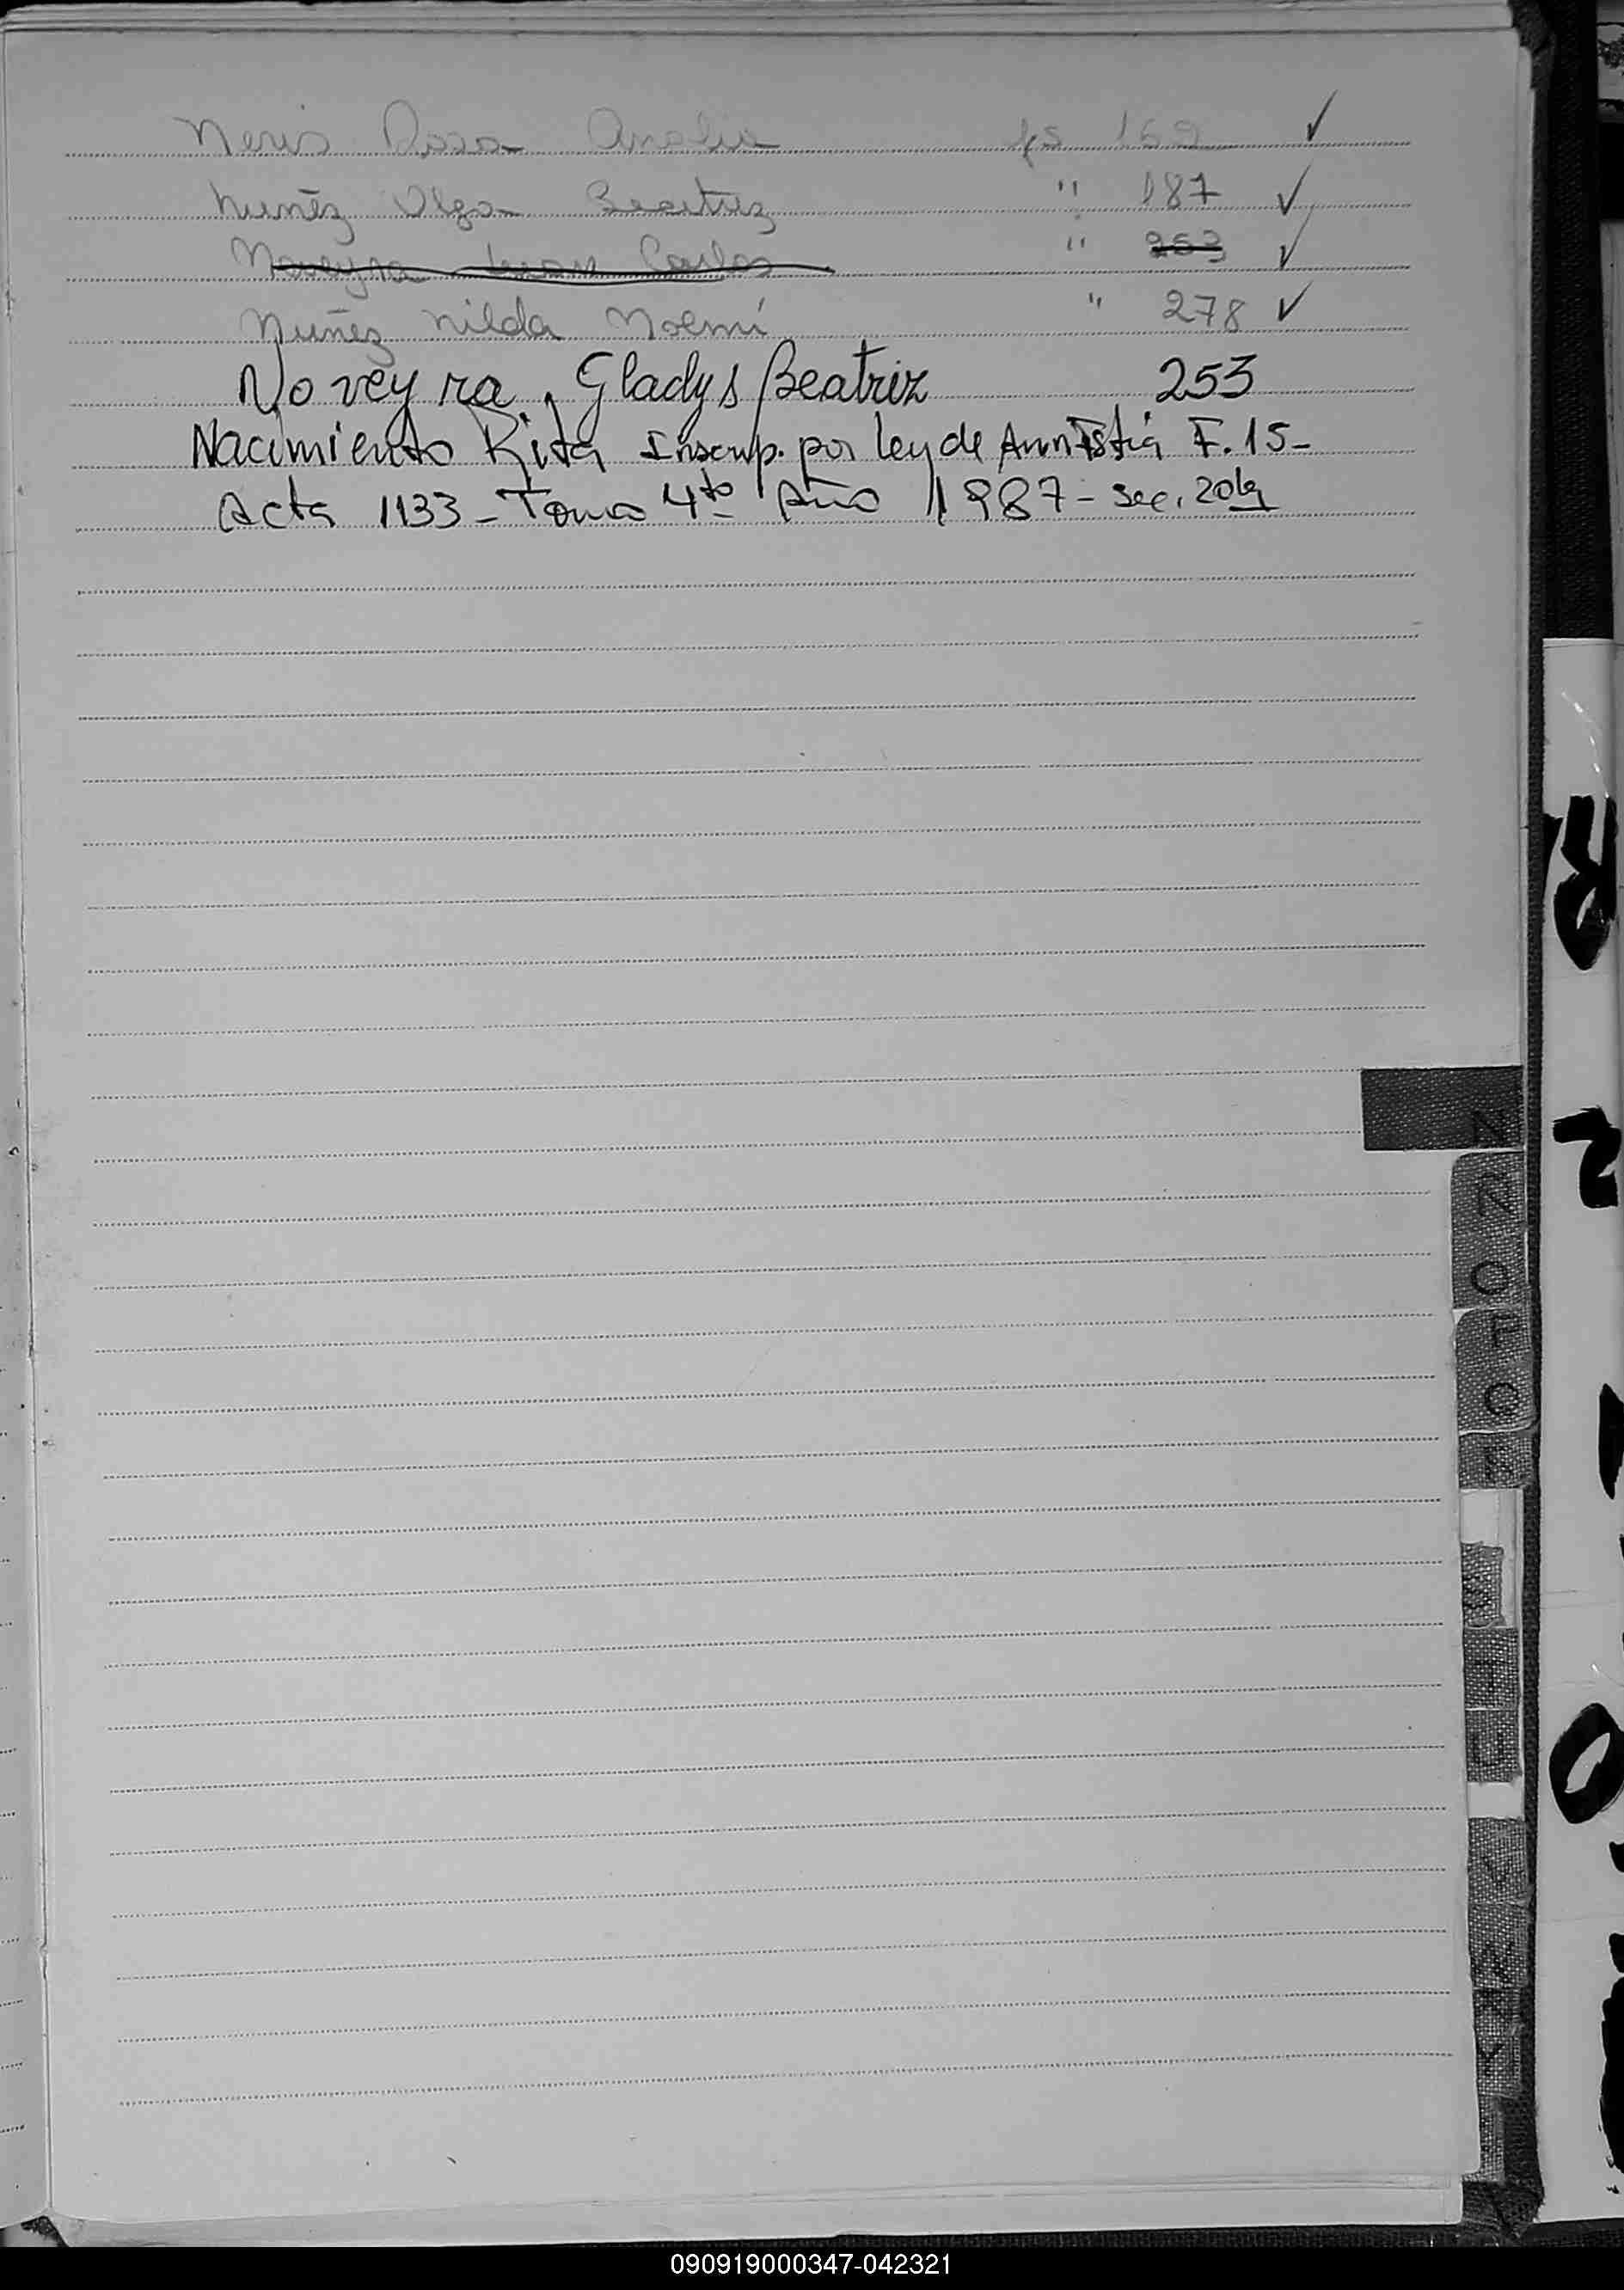 Neris Rosa Analia fs 169 ✓
Nuñez Olga Beatriz " 187 ✓
Noveyra Juan Carlos " 253 ✓
Nuñez Nilda Noemí " 278 ✓
Noveyra, Gladys Beatriz 253
Nacimiento Rita Inscrip. por Ley de Amnistía F. 15-
Acta 1133 - Tomo 4to Año 1987 - Sec. 20
N
N
Ñ
O
090919000347-042321